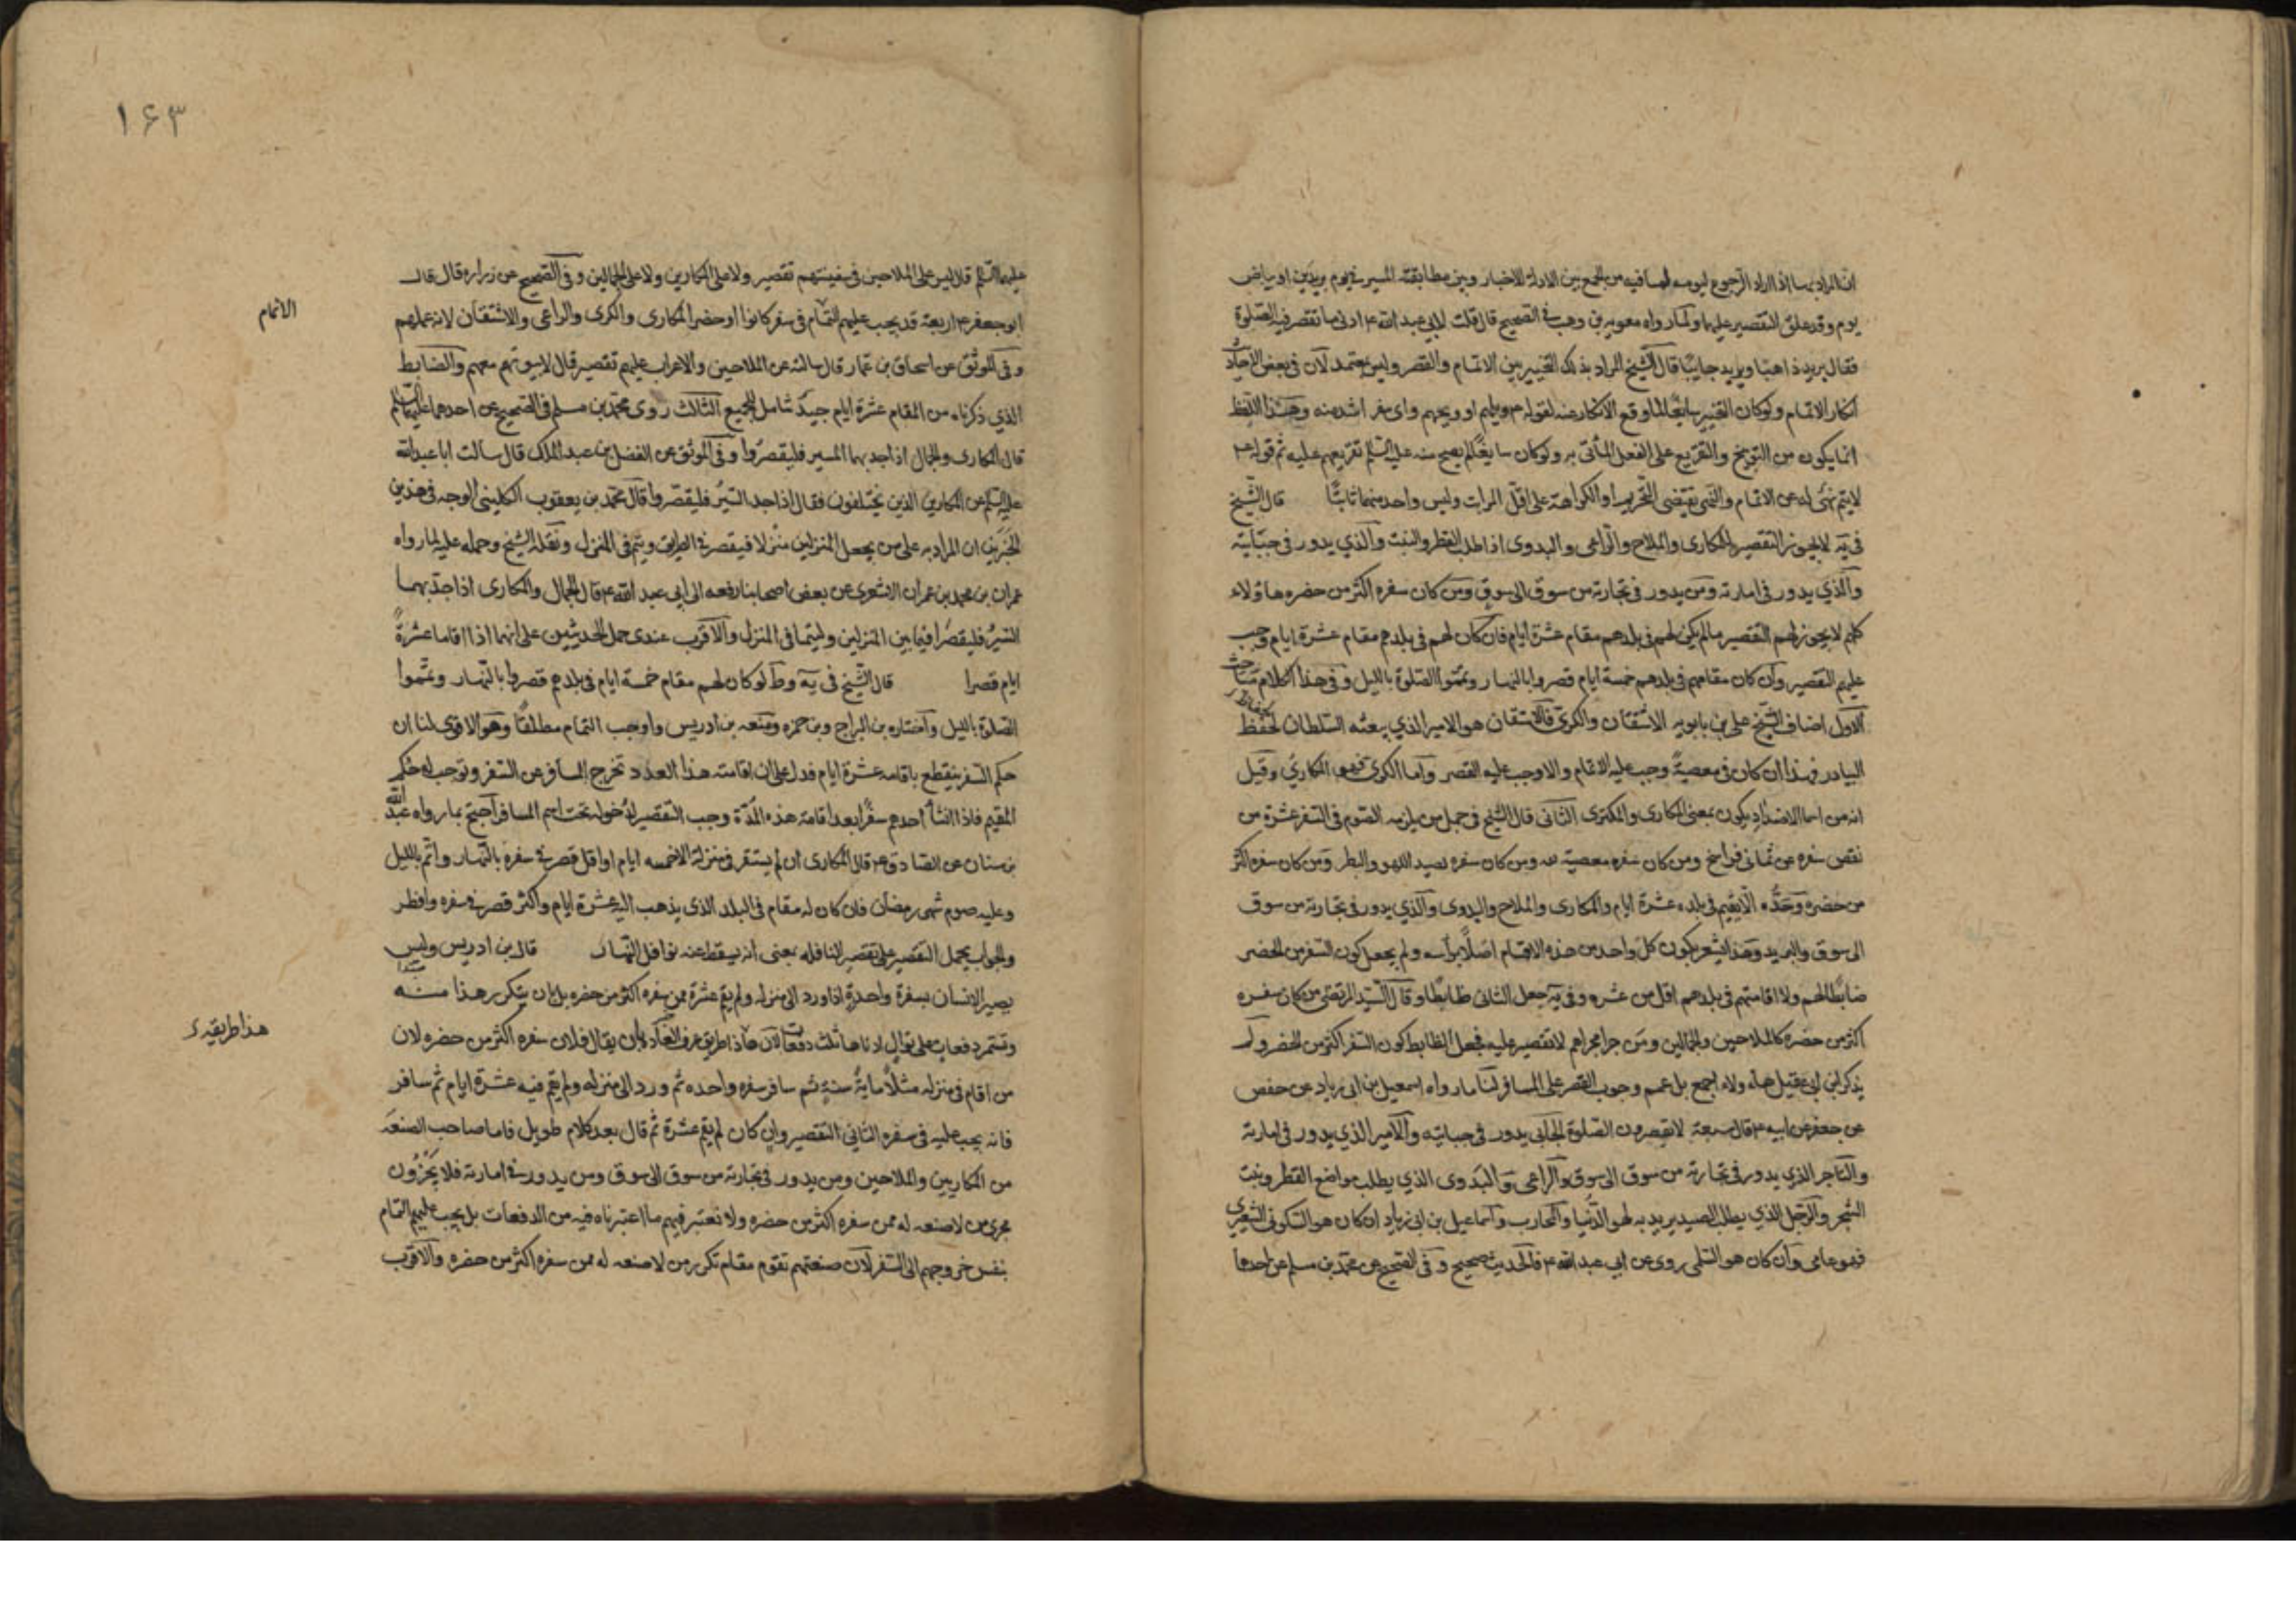 ان المراد بها اذا اراد الرجوع ليومه لما فيه من الجمع بين الادلة للاخبار وبين مطابقته المسير في يوم بريدين او بياض
يوم وقد علق التقصير عليها ولما رواه معوية بن وهب في الصحيح قال قلت لابي عبد الله ع ادنى ما تقصر فيه الصلوة
فقال بريد ذاهبا وبريد جايبا قال الشيخ المراد بذلك التخيير بين الاتمام والقصر وليس بمعتمد لان في بعض الاخبار
انكار الاتمام ولو كان التخيير سايغا لما وقع الانكار عنه لقوله ع ويلهم او ويحهم واى سفر اشد منه وهذا اللفظ
انما يكون من التوبيخ والتقريع على الفعل المأتى به ولو كان سايغا لم يصح منه عليه السلم تقريعهم عليه ثم قوله ع
لا يتم نهى له عن الاتمام والنهى يقتضى التحريم او الكراهة على اقل المرات وليس واحد منهما ثابتا قال الشيخ
في يه لا يجوز التقصير للمكارى والملاح والراعى والبدوى اذا طلب القطر والنبت والذي يدور في جبايته
والذي يدور في امارته ومن يدور في تجارته من سوق الى سوق ومن كان سفره اكثر من حضره هاؤلاء
كلهم لا يجوز لهم التقصير ما لم يكن لهم في بلدهم مقام عشرة ايام فان كان لهم في بلدهم مقام عشرة ايام وجب
عليهم التقصير وان كان مقامهم في بلدهم خمسة ايام قصروا بالنهار وتمموا الصلوة بالليل وفى هذا الكلام مباحث
الاول اضاف الشيخ على بن بابويه الاشتقان والكرى فالاشتقان هو الامير الذي يبعثه السلطان لحفظ
البيادر فهذا ان كان في معصية وجب عليه الاتمام والا وجب عليه القصر واما الكرى فهو المكاري وقيل
انه من اسما الاضداد يكون بمعنى المكارى والمكترى الثانى قال الشيخ في جمل من يلزمه الصوم في السفر عشرة من
نقص سفره عن ثمانى فراسخ ومن كان سفره معصية لله ومن كان سفره لصيد اللهو والبطر ومن كان سفره اكثر
من حضره وحده الا يقيم في بلده عشرة ايام والمكارى والملاح والبدوى والذي يدور في تجارته من سوق
الى سوق والبريد وهذا يشعر بكون كل واحد من هذه الاقسام اصلا برأسه ولم يجعل كون السفر من الحضر
ضابطا لهم ولا اقامتهم في بلدهم اقل من عشره وفى يه جعل الثانى ظابطا وقال السيد المرتضى من كان سفره
اكثر من حضره كالملاحين والجمالين ومن جرا مجراهم لا تقصير عليه فجعل الظابط كون السفر اكثر من الحضر ولم
يذكر ابن ابى عقيل هاولاء اجمع بل عمم وجوب القصر على المسافر لنا ما رواه اسمعيل بن ابى زياد عن جعفر
عن جعفر عن ابيه ع قال سبعة لا يقصرون الصلوة الجابى يدور في جبايته والامير الذي يدور في امارته
والتاجر الذي يدور في تجارته من سوق الى سوق والراعى والبدوى الذي يطلب مواضع القطر ونبت
الشجر والرجل الذي يطلب الصيد يريد به لهو الدنيا والمحارب واسماعيل بن ابى زياد ان كان هو السكونى الشعيرى
فهو عامى وان كان هو السلمى روى عن ابي عبد الله ع فالحديث صحيح وفى الصحيح عن محمد بن مسلم عن احدهما
١٦٣
عليهما السلم قال ليس على الملاحين في سفينتهم تقصير ولا على المكارين ولا على الجمالين وفى الصحيح عن زراره قال قال
ابو جعفر ع اربعة قد يجب عليهم التمام في سفر كانوا او حضر المكارى والكرى والراعى والاشتقان لانه عملهم
الاتمام
وفى الموثق عن اسحاق بن عمار قال سالته عن الملاحين والاعراب عليهم تقصير قال لا بيوتهم معهم والضابط
الذي ذكرناه من المقام عشرة ايام جيد شامل للجميع الثالث روى محمد بن مسلم في الصحيح عن احدهما عليهما السلم
قال المكارى والجمال اذا جد بهما المسير فليقصروا وفى الموثق عن الفضل بن عبد الملك قال سالت ابا عبد الله
عليه السلم عن المكارين الذين يختلفون فقال اذا جد السير فليقصروا قال محمد بن يعقوب الكلينى الوجه في هذين
الخبرين ان المراد به على من يجعل المنزلين منزلا فيقصر في الطريق ويتم في المنزل ونقله الشيخ وحمله عليه لما رواه
عمران بن محمد بن عمران الاشعرى عن بعض اصحابنا رفعه الى ابى عبد الله ع قال الجمال والمكارى اذا جد بهما
السير فليقصرا فيما بين المنزلين وليتما في المنزل والاقرب عندى حمل الحديثين على انهما اذا اقاما عشرة
ايام قصرا قال الشيخ في يه وط لو كان لهم مقام خمسة ايام في بلدهم قصروا بالنهار وتمموا
الصلوة بالليل واختاره بن البراج وبن حمزه ومنعه بن ادريس واوجب التمام مطلقا وهو الاقوى لنا ان
حكم السفر ينقطع باقامة عشرة ايام فدل على ان اقامته هذا العدد تخرج المسافر عن السفر وتوجب له حكم
المقيم فاذا انشأ احدهم سفرا بعد اقامة هذه المدة وجب التقصير لدخوله تحت اسم المسافر احتج بما رواه عبد الله
بن سنان عن الصادق ع قال المكارى ان لم يستقر في منزله الا خمسه ايام او اقل قصر في سفره بالنهار واتم بالليل
وعليه صوم شهر رمضان فان كان له مقام في البلد الذي يذهب اليه عشرة ايام واكثر قصر في سفره وافطر
والجواب يحمل التقصير على تقصير النافله بمعنى انه يسقط عنه نوافل النهار قال بن ادريس وليس
يصير الانسان بسفرة واحدة اذا ورد الى منزله ولم يقم عشرة ممن سفره اكثر من حضره بل بان يتكرر هذا منه
وتستمر دفعات على توال ادناها ثلث دفعات لان هذا طريقه عرف العاده بان يقال فلان سفره اكثر من حضره لان
هذا طريقه
من اقام في منزله مثلا ماية سنة ثم سافر سفره واحده ثم ورد الى منزله ولم يقم فيه عشرة ايام ثم سافر
فانه يجب عليه في سفره الثانى التقصير وان كان لم يقم عشرة ثم قال بعد كلام طويل فاما صاحب الصنعة
من المكاريين والملاحين ومن يدور في تجارته من سوق الى سوق ومن يدور في امارته فلا يجرون
مجرى من لا صنعه له ممن سفره اكثر من حضره ولا نعتبر فيهم ما اعتبرناه فيه من الدفعات بل يجب عليهم التمام
بنفس خروجهم الى السفر لان صنعتهم تقوم مقام تكرر من لا صنعه له ممن سفره اكثر من حضره والاقرب